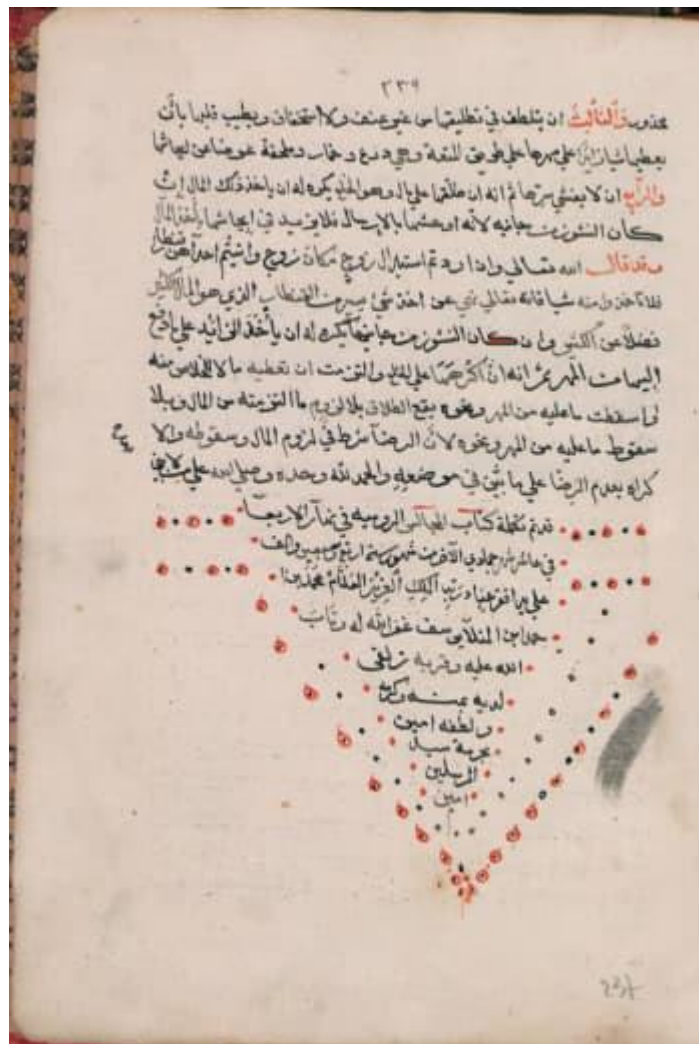 ٢٣٩
محذور والثالث ان يتلطف في تطليقها من غير عنف ولا استخفاف ويطيب قلبها بان
يعطيها شيا زايدا علي مهرها علي طريق المتعة وهي درع وخمار وملحفة عوضا عن ايحاشها
والرابع ان لا يفشي سرها ثم انه ان طلقها علي مال وهو الخلع يكره له ان ياخذ ذلك المال ان
كان النشوز من جانبه لانه اوحشها بالارسال فلا يزيد في ايحاشها باخذ المال
وقد قال الله تعالي وان اردتم استبدال زوج مكان زوج واتيتم احداهن قنطارا
فلا تاخذوا منه شيا فانه تعالي نهي عن اخذ شئ يسير من القنطار الذي هو المال الكثير
فضلا عن الكثير وان كان النشوز من جانبها يكره له ان يأخذ الزائد علي ما دفع
اليها من المهر ثم انه ان اكرهها علي الخلع والتزمت ان تعطيه مالا للخلاص منه
او اسقطت ما عليه من المهر ونحوه يقع الطلاق بلا لزوم ما التزمته من المال وبلا
سقوط ما عليه من المهر ونحوه لان الرضا شرط في لزوم المال وسقوطه والا
كراه يعدم الرضا علي ما بين في موضعه والحمد لله وحده وصلي الله علي من لا نبي
قد تم تكملة كتاب المجالس الروميه في نهار الاربعا
في عاشر شهر جمادي الآخر من شهور سنة اربع وألف
علي يد افقر عباد ربه الملك العزيز العلام محمد بن
ابن المنلا يوسف غفر الله له وتاب
الله عليه وقربه زلفي
لديه بمنه وكرمه
ولطفه امين
بحرمة سيد
المرسلين
امين
237